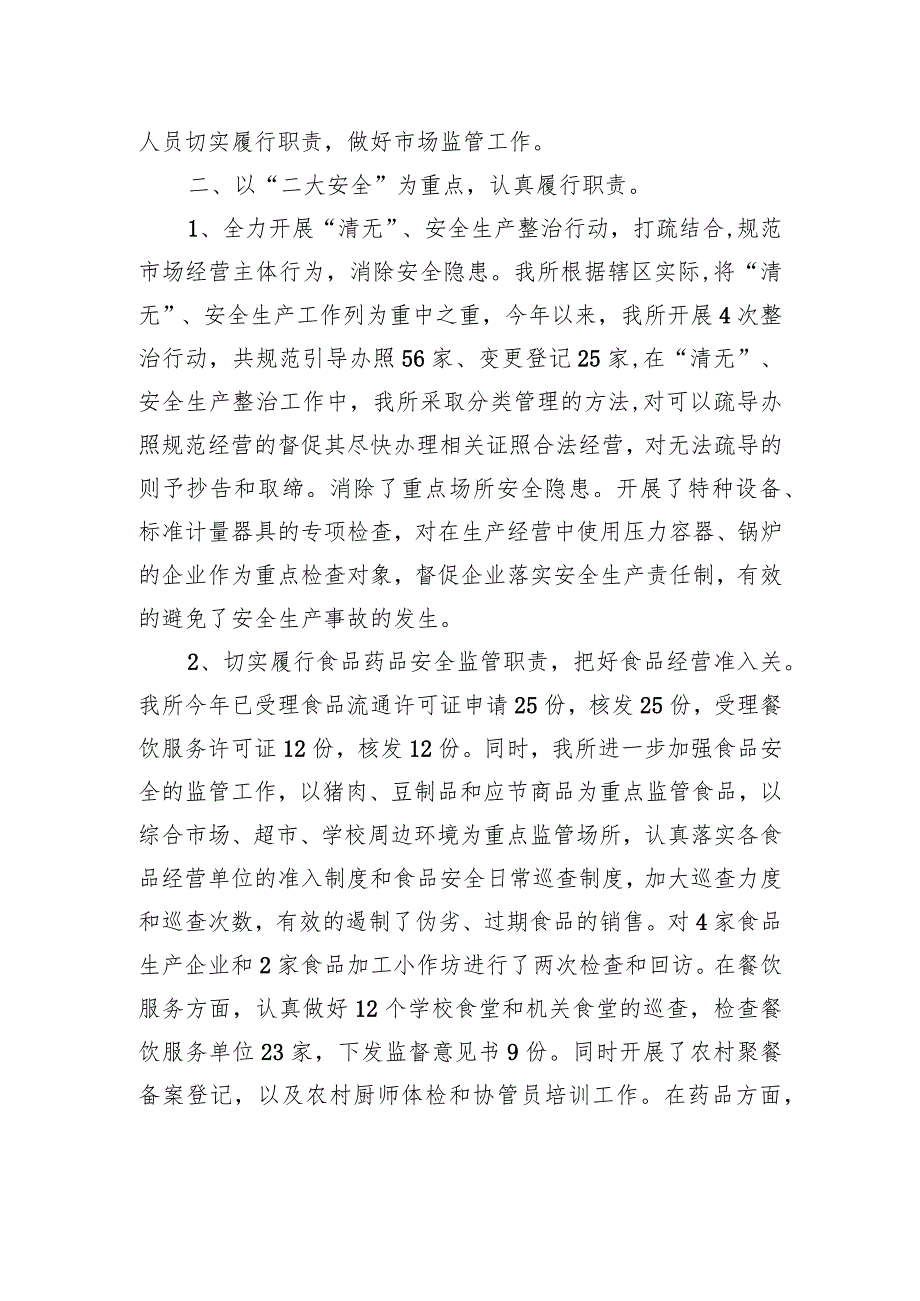 人员切实履行职责，做好市场监管工作。
二、以“二大安全”为重点，认真履行职责。
1、全力开展“清无”、安全生产整治行动，打疏结合,规范
市场经营主体行为，消除安全隐患。我所根据辖区实际,将“清
无”、安全生产工作列为重中之重，今年以来，我所开展4次整
治行动，共规范引导办照56家、变更登记25家,在“清无”、
安全生产整治工作中，我所采取分类管理的方法,对可以疏导办
照规范经营的督促其尽快办理相关证照合法经营，对无法疏导的
则予抄告和取缔。消除了重点场所安全隐患。开展了特种设备、
标准计量器具的专项检查，对在生产经营中使用压力容器、锅炉
的企业作为重点检查对象，督促企业落实安全生产责任制，有效
的避免了安全生产事故的发生。
2、切实履行食品药品安全监管职责，把好食品经营准入关。
我所今年已受理食品流通许可证申请25份，核发25份，受理餐
饮服务许可证12份，核发12份。同时，我所进一步加强食品安
全的监管工作，以猪肉、豆制品和应节商品为重点监管食品，以
综合市场、超市、学校周边环境为重点监管场所，认真落实各食
品经营单位的准入制度和食品安全日常巡查制度，加大巡查力度
和巡查次数，有效的遏制了伪劣、过期食品的销售。对4家食品
生产企业和2家食品加工小作坊进行了两次检查和回访。在餐饮
服务方面，认真做好12个学校食堂和机关食堂的巡查，检查餐
饮服务单位23家，下发监督意见书9份。同时开展了农村聚餐
备案登记，以及农村厨师体检和协管员培训工作。在药品方面，